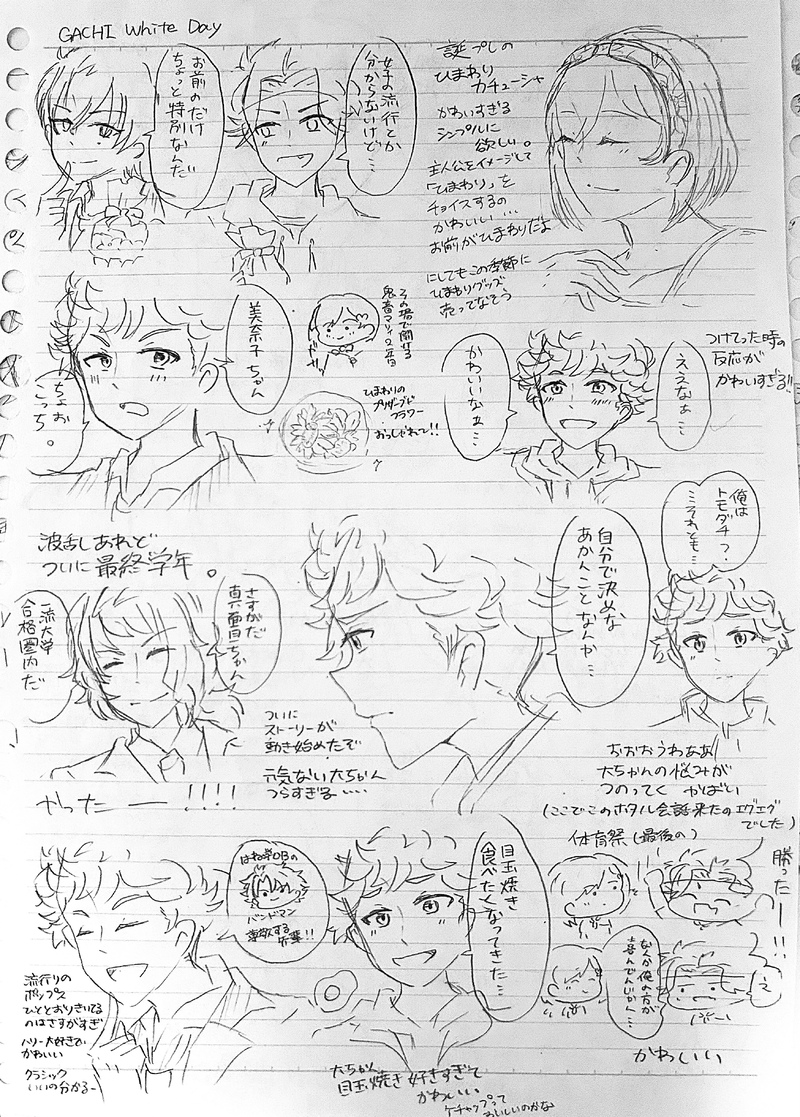 GACHI White Day
誕プレの
ひまわり
カチューシャ
かわいすぎる
シンプルに
欲しい。
主人公をイメージして
「ひまわり」を
チョイスするの
かわいい…
お前がひまわりだよ
にしてもこの季節に
ひまわりグッズ
売ってなそう
女子の流行とか
分からないけど…
お前のだけ
ちょっと特別なんだ
つけてった時の
反応が
かわいすぎる!!
ええなぁ…
かわいいなぁ…
その場で開ける
鬼畜マリィ2年目
美奈子ちゃん
ちょお
こっち。
ひまわりの
プリザーブド
フラワー
おっしゃれて!!
俺は
トモダチ?
…それとも…
自分で決めな
あかんことなんか…
おおおうわぁぁ
大ちゃんの悩みが
つのってく かばい
(ここでこのホタル会話来たのエグエグ
でした)
波乱しあれど
ついに最終学年。
さすがだ
真面目ちゃん
一流大学
合格圏内だ
ついに
ストーリーが
動き始めたぞ
元気ない大ちゃん
つらすぎる…
やったー!!!!
体育祭(最後の)
勝ったー!!
え
なんか俺の方が
喜んでんじゃん…
かわいい
目玉焼き
食べたくなってきた…
はね学OBの
バンドマン
尊敬する
先輩!!
流行りの
ポップス
ひととおりきいてる
のはさすがすぎ
ハリー大好きで
かわいい
クラシック
いいの分かるー
大ちゃん
目玉焼き好きすぎて
かわいい
ケチャップって
おいしいのかな